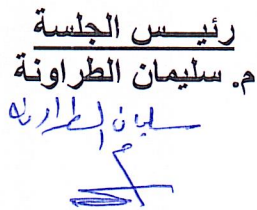 رئيس الجلسة
م. سليمان الطراونة
سليمان الطراونة